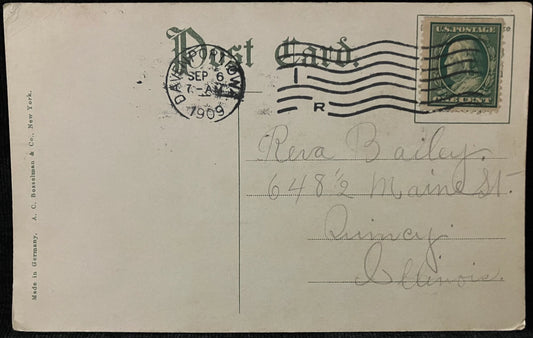 Post Card.
DAVENPORT, IOWA
SEP 6
7-AM
1909
1
R
U.S. POSTAGE
Reva Bailey.
648½ Maine St.
Quincy
Illinois.
Made in Germany. A. C. Bosselman & Co., New York.